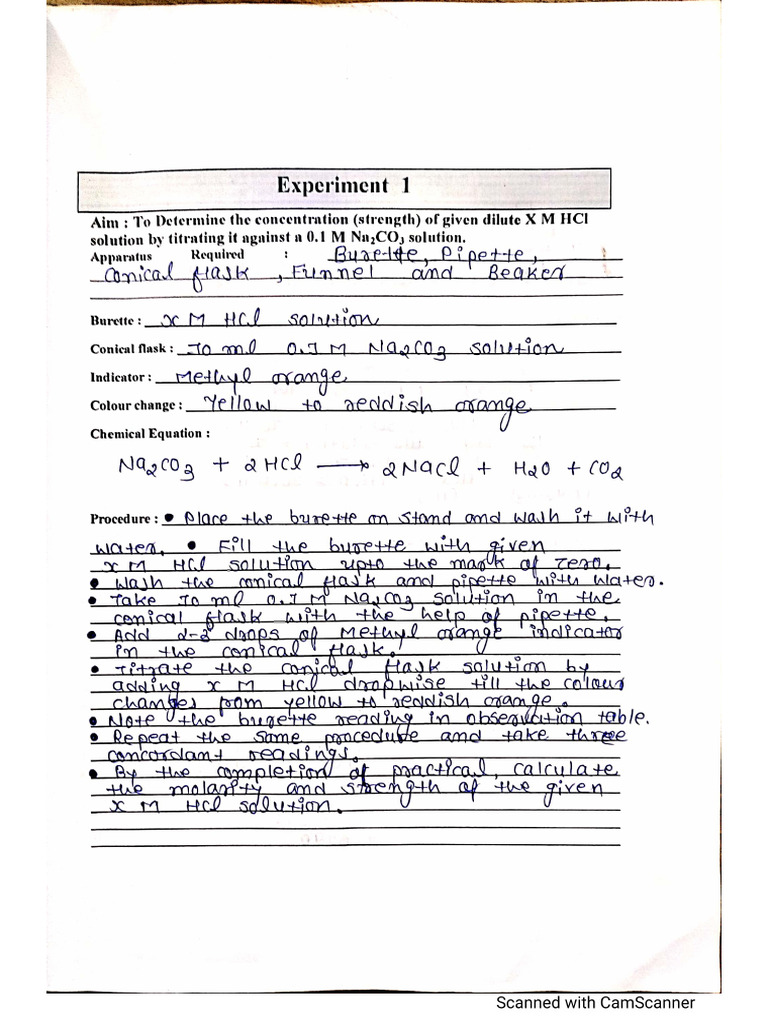 Experiment 1
Aim : To Determine the concentration (strength) of given dilute X M HCl
solution by titrating it against a 0.1 M Na₂CO₃ solution.
Apparatus Required : Burette, Pipette,
Conical flask, Funnel and Beaker
Burette : X M HCl solution
Conical flask : 10 ml 0.1 M Na₂CO₃ solution
Indicator : Methyl orange
Colour change : Yellow to reddish orange
Chemical Equation :
Na₂CO₃ + 2HCl ⟶ 2NaCl + H₂O + CO₂
Procedure : • Place the burette on stand and wash it with
water. • Fill the burette with given
X M HCl solution upto the mark of zero.
• Wash the conical flask and pipette with water.
• Take 10 ml 0.1 M Na₂CO₃ solution in the
conical flask with the help of pipette.
• Add 2-3 drops of Methyl orange indicator
in the conical flask.
• Titrate the conical flask solution by
adding X M HCl dropwise till the colour
changes from yellow to reddish orange.
• Note the burette reading in observation table.
• Repeat the same procedure and take three
concordant readings.
• By the completion of practical, calculate
the molarity and strength of the given
X M HCl solution.
Scanned with CamScanner